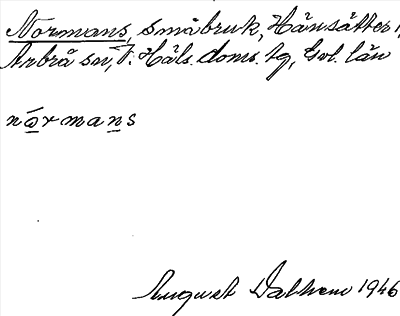 Normans, småbruk, Hänsätter,
Arbrå sn, V. Häls. doms. tg, Gvl. län
nårmans
August Dalhem 1946